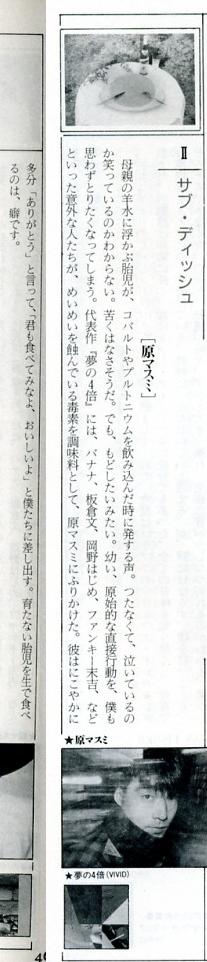 Ⅱ サブ・ディッシュ
［原マスミ］
母親の羊水に浮かぶ胎児が、コバルトやプルトニウムを飲み込んだ時に発する声。つたなくて、泣いているの
か笑っているのかわからない。苦くはなさそうだ。でも、もどしたいみたい。幼い、原始的な直接行動を、僕も
思わずとりたくなってしまう。代表作『夢の4倍』には、バナナ、板倉文、岡野はじめ、ファンキー末吉、など
といった意外な人たちが、めいめいを蝕んでいる毒素を調味料として、原マスミにふりかけた。彼はにこやかに
多分「ありがとう」と言って、「君も食べてみなよ、おいしいよ」と僕たちに差し出す。育たない胎児を生で食べ
るのは、癖です。
★原マスミ
★夢の4倍(VIVID)